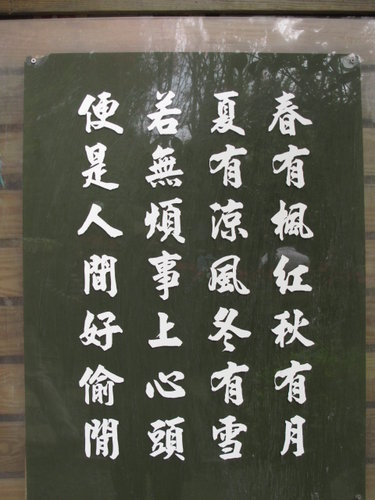 春有楓紅秋有月
夏有涼風冬有雪
若無煩事上心頭
便是人間好偷閒